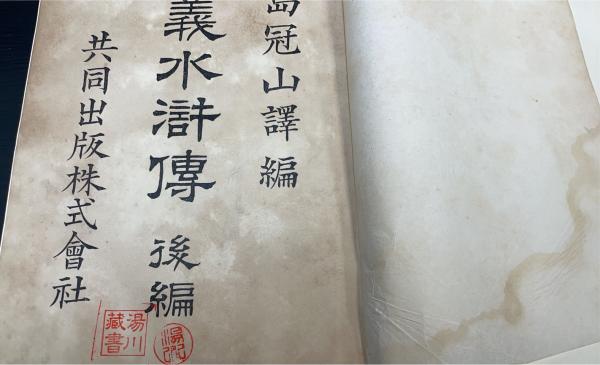 島冠山譯編
義水滸傳 後編
共同出版株式會社
湯川
藏書